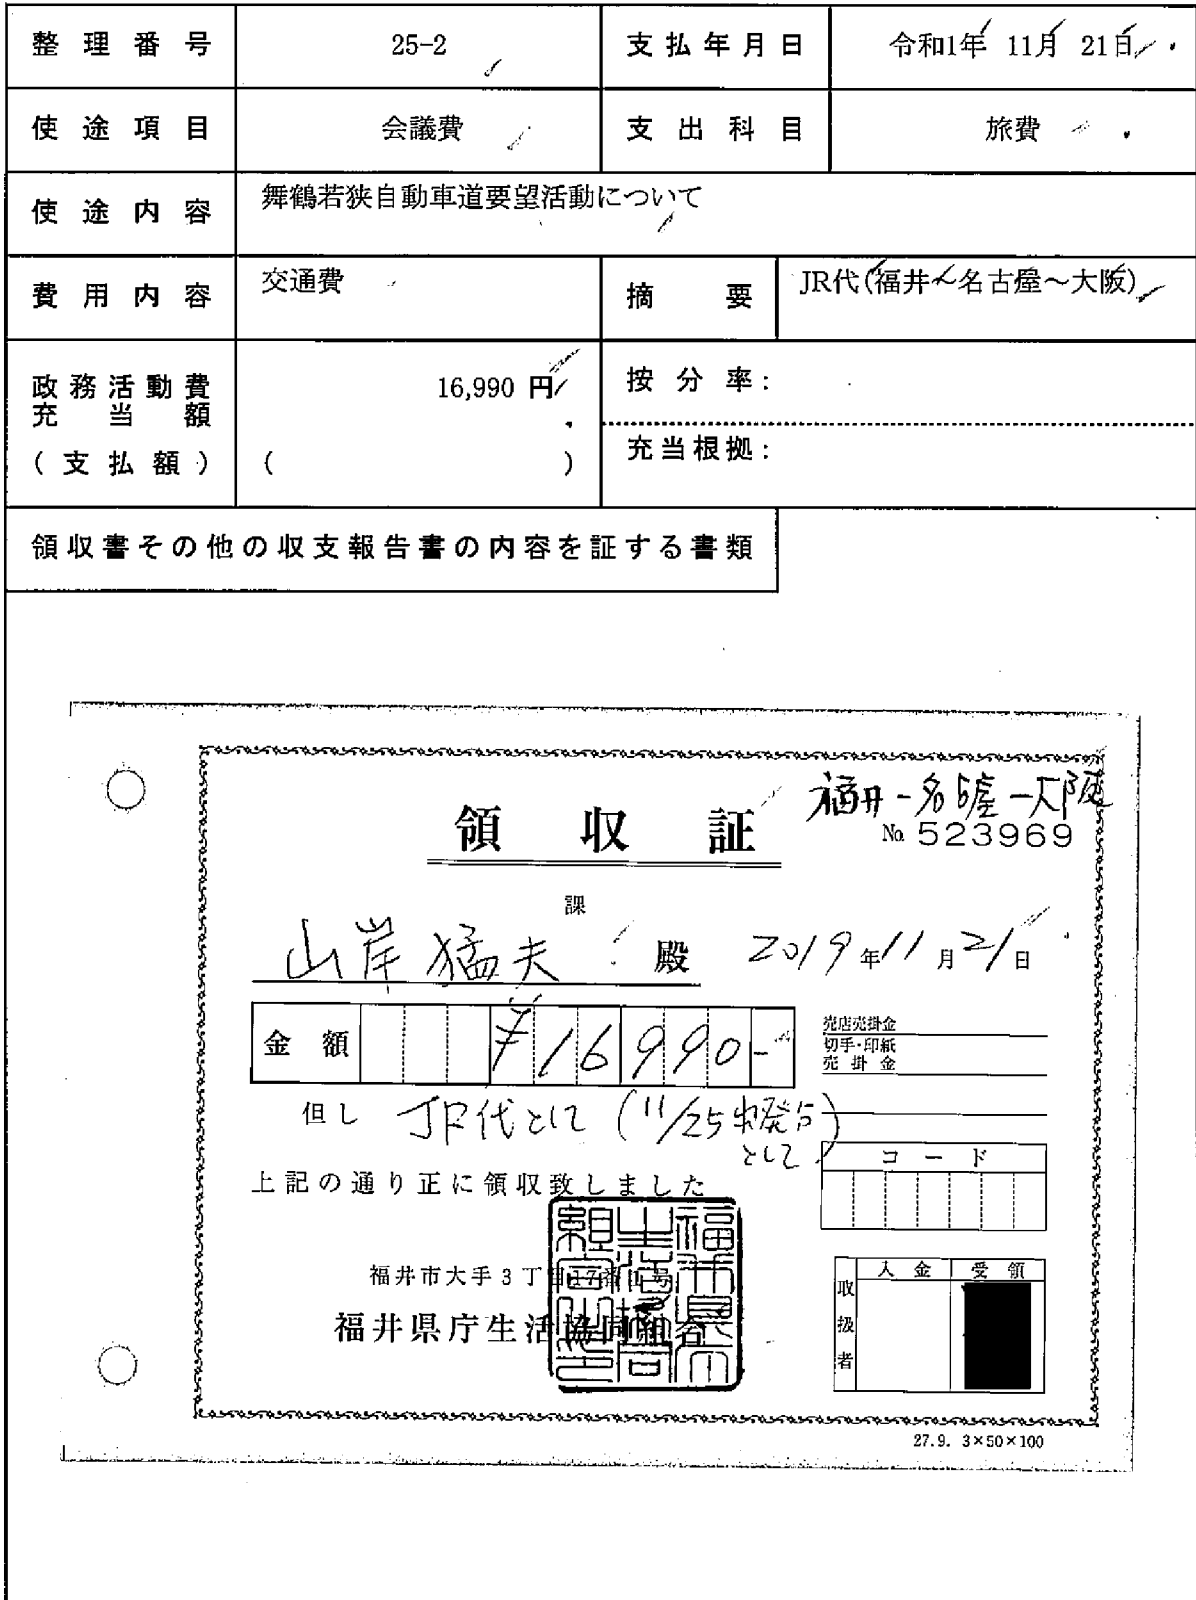 整理番号 25-2 支払年月日 令和1年 11月 21日
使途項目 会議費 支出科目 旅費
使途内容 舞鶴若狭自動車道要望活動について
費用内容 交通費 摘要 JR代(福井～名古屋～大阪)
政務活動費
充当額
(支払額)
16,990 円
( )
按分率:
充当根拠:
領収書その他の収支報告書の内容を証する書類
福井-名古屋-大阪
領収証
№ 523969
課
山岸 猛夫 殿 2019年11月21日
金額 ¥16990-
売店売掛金
切手・印紙
売掛金
但し JR代として (11/25出発分
として)
コード
上記の通り正に領収致しました
福井市大手3丁目17番1号
福井県庁生活協同組合
入金 受領
取扱者
27.9. 3×50×100